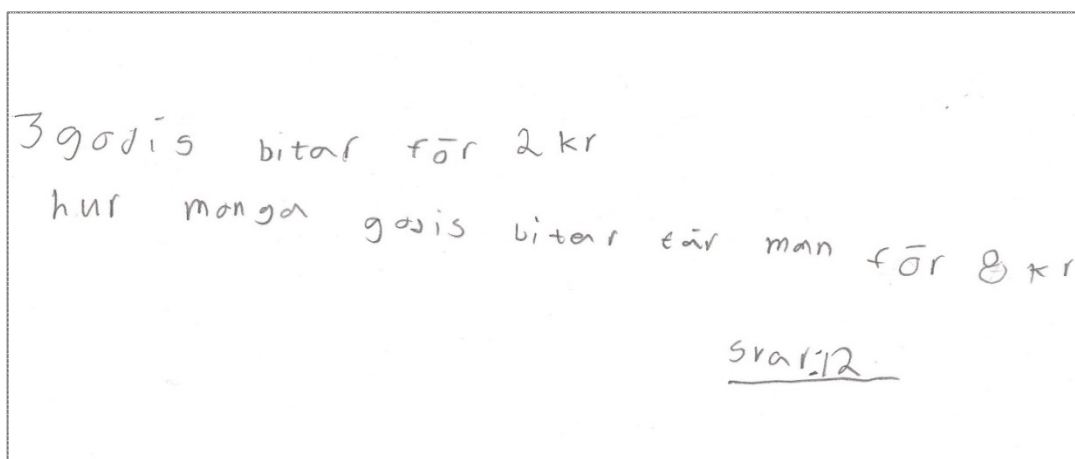 3 godis bitar för 2 kr
hur manga godis bitar får man för 8 kr
svar:12